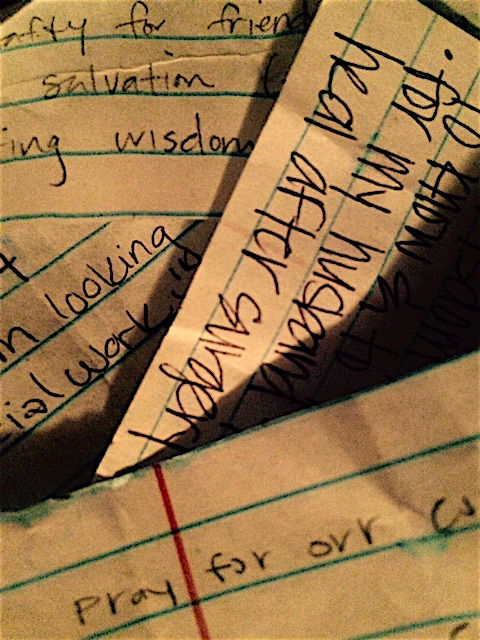 afty for friend
salvation (
ing wisdom
n looking
ial work
to know
• for my husband to
heal after surgery
pray for orr